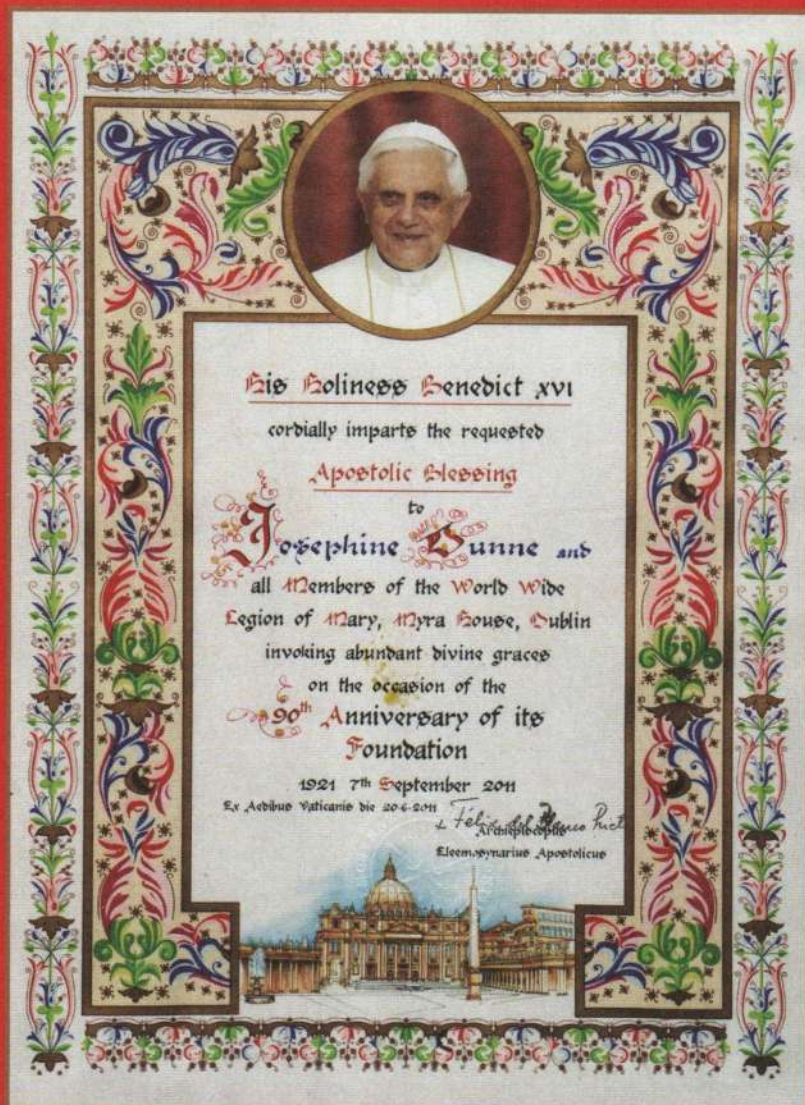 His Holiness Benedict XVI
cordially imparts the requested
Apostolic Blessing
to
Josephine Dunne and
all Members of the World Wide
Legion of Mary, Myra House, Dublin
invoking abundant divine graces
on the occasion of the
90th Anniversary of its
Foundation
1921 7th September 2011
Ex Aedibus Vaticanis die 20-6-2011
+ Félix del Blanco Prieto
Archiepiscopus
Eleemosynarius Apostolicus